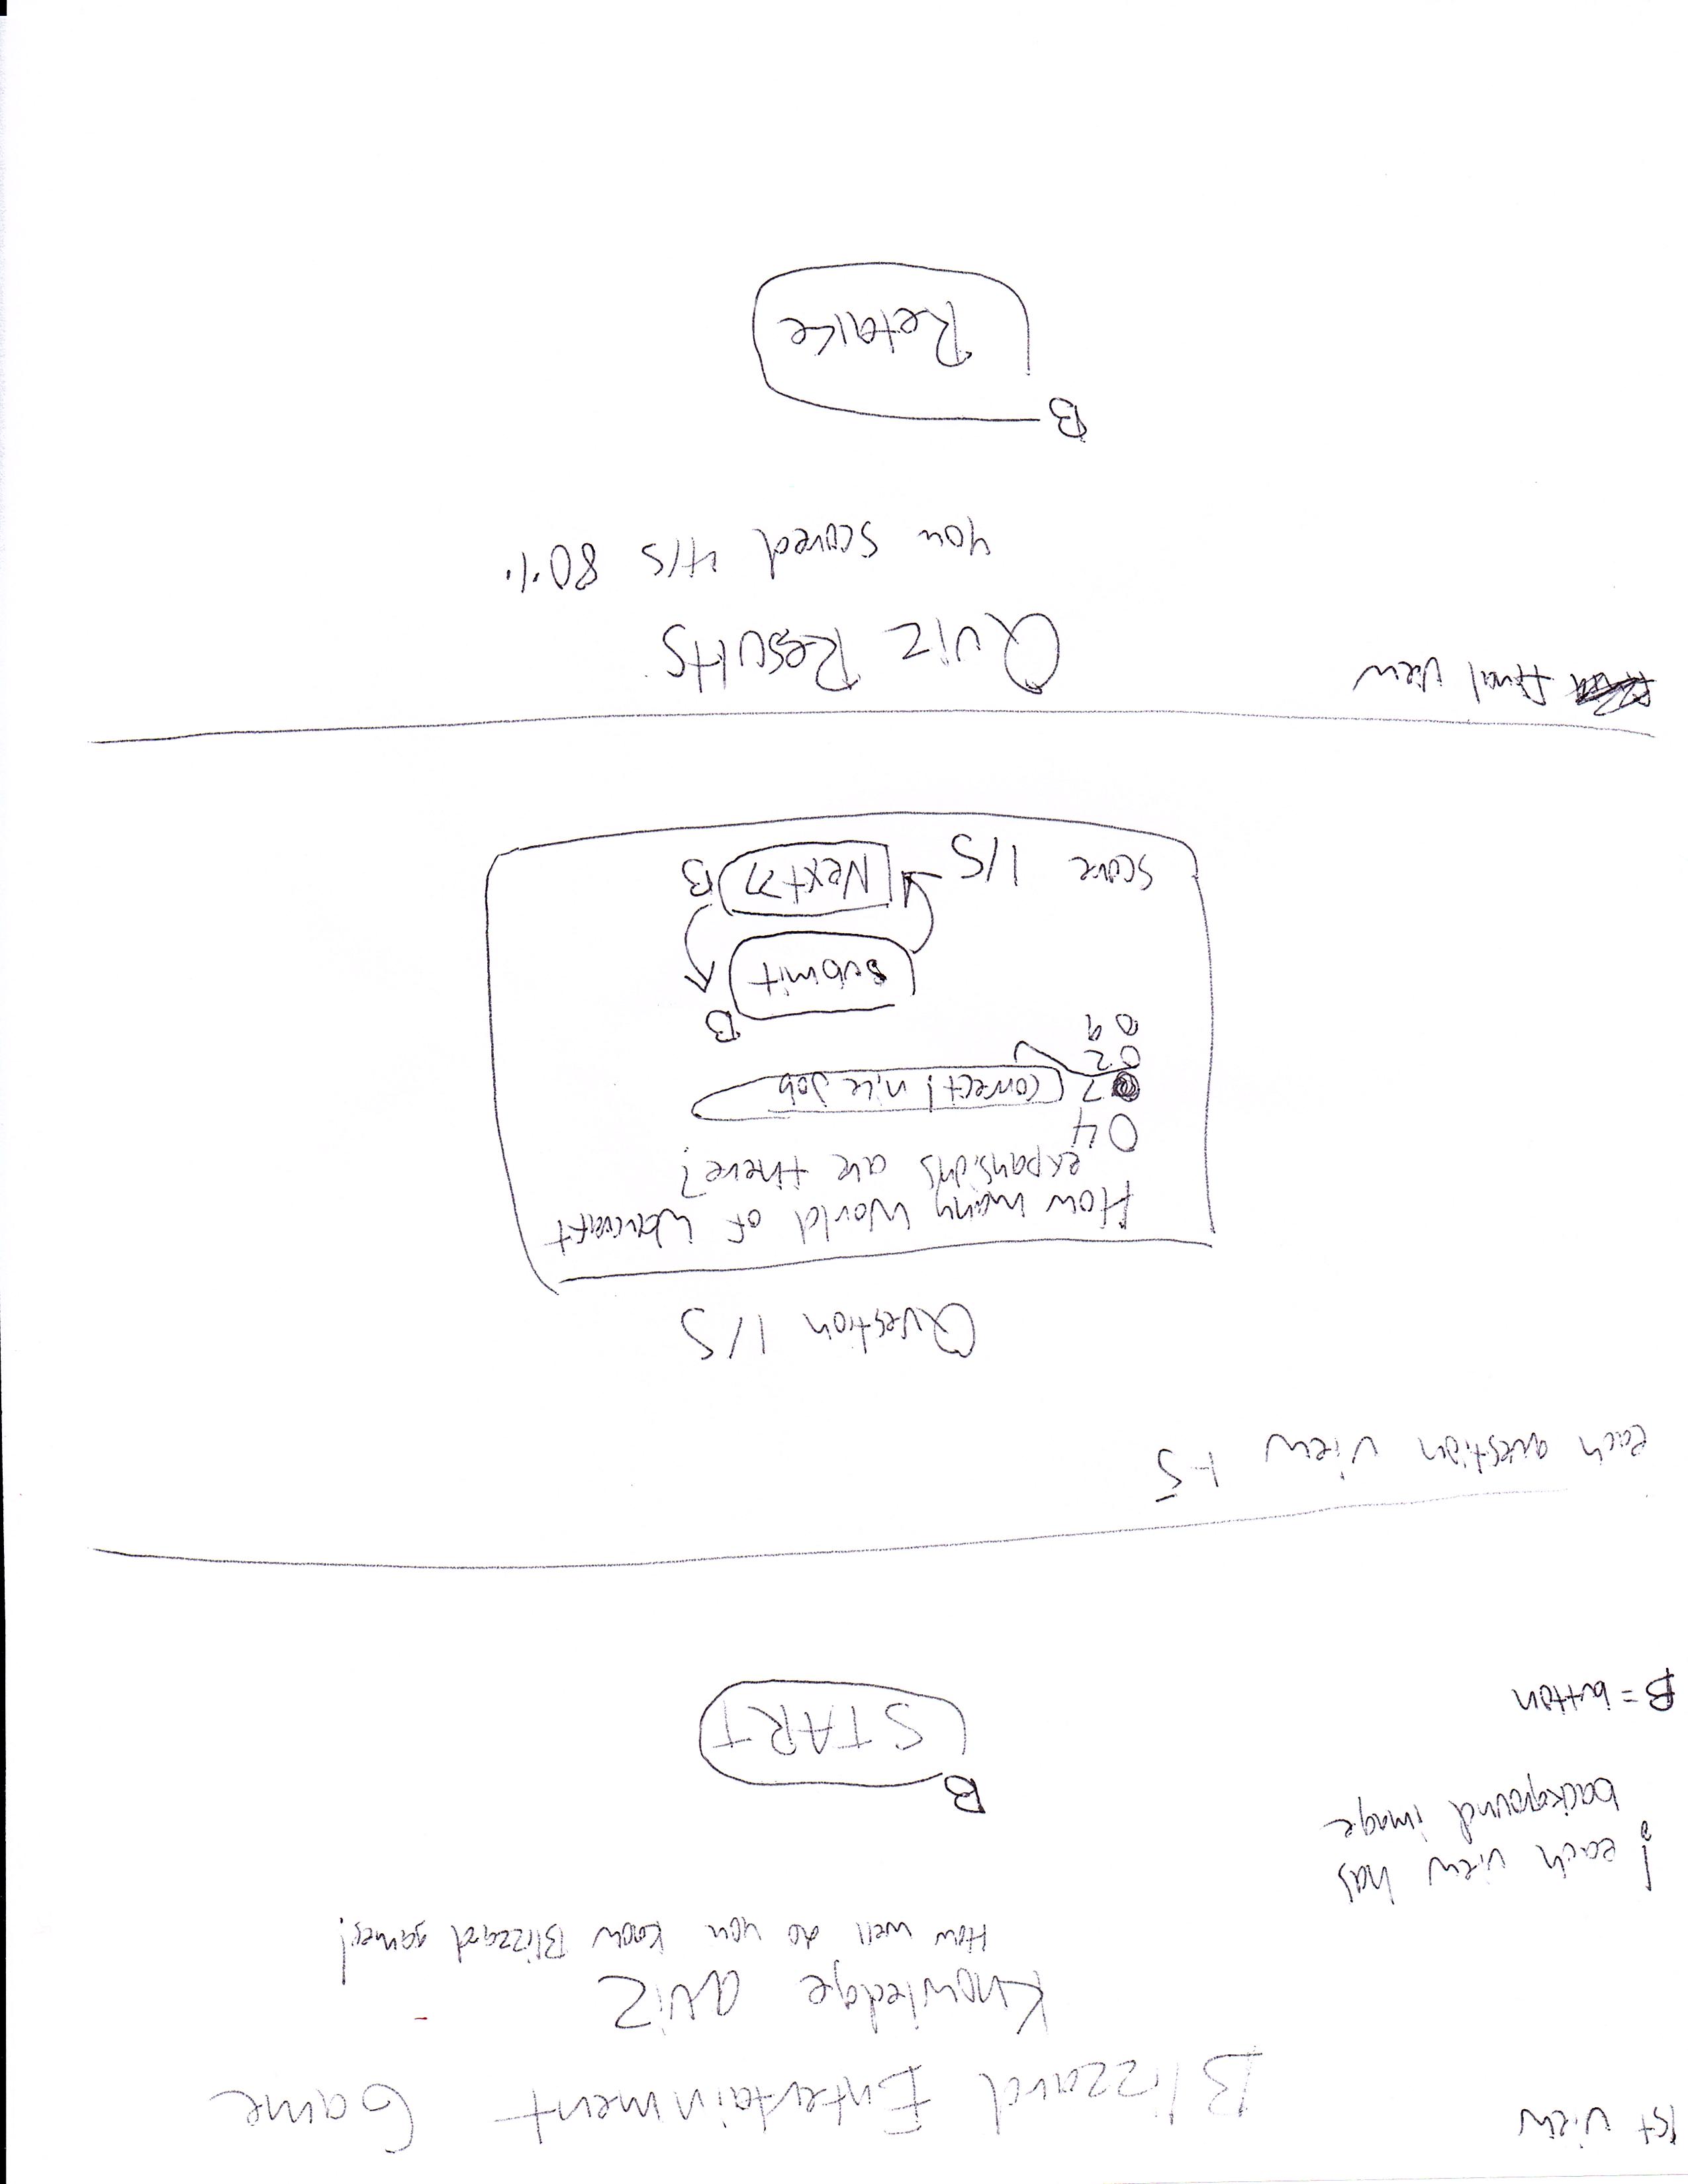 1st view
Blizzard Entertainment Game
Knowledge Quiz
How well do you know Blizzard games!
! each view has
background image
B
START
B = button
each question view 1-5
Question 1/5
How many World of Warcraft
expansions are there?
O 4
7 Correct! nice job
O 2
O 9
B
Submit
Score 1/5 Next >> B
final view
Quiz Results
you scored 4/5 80%
B
Retake